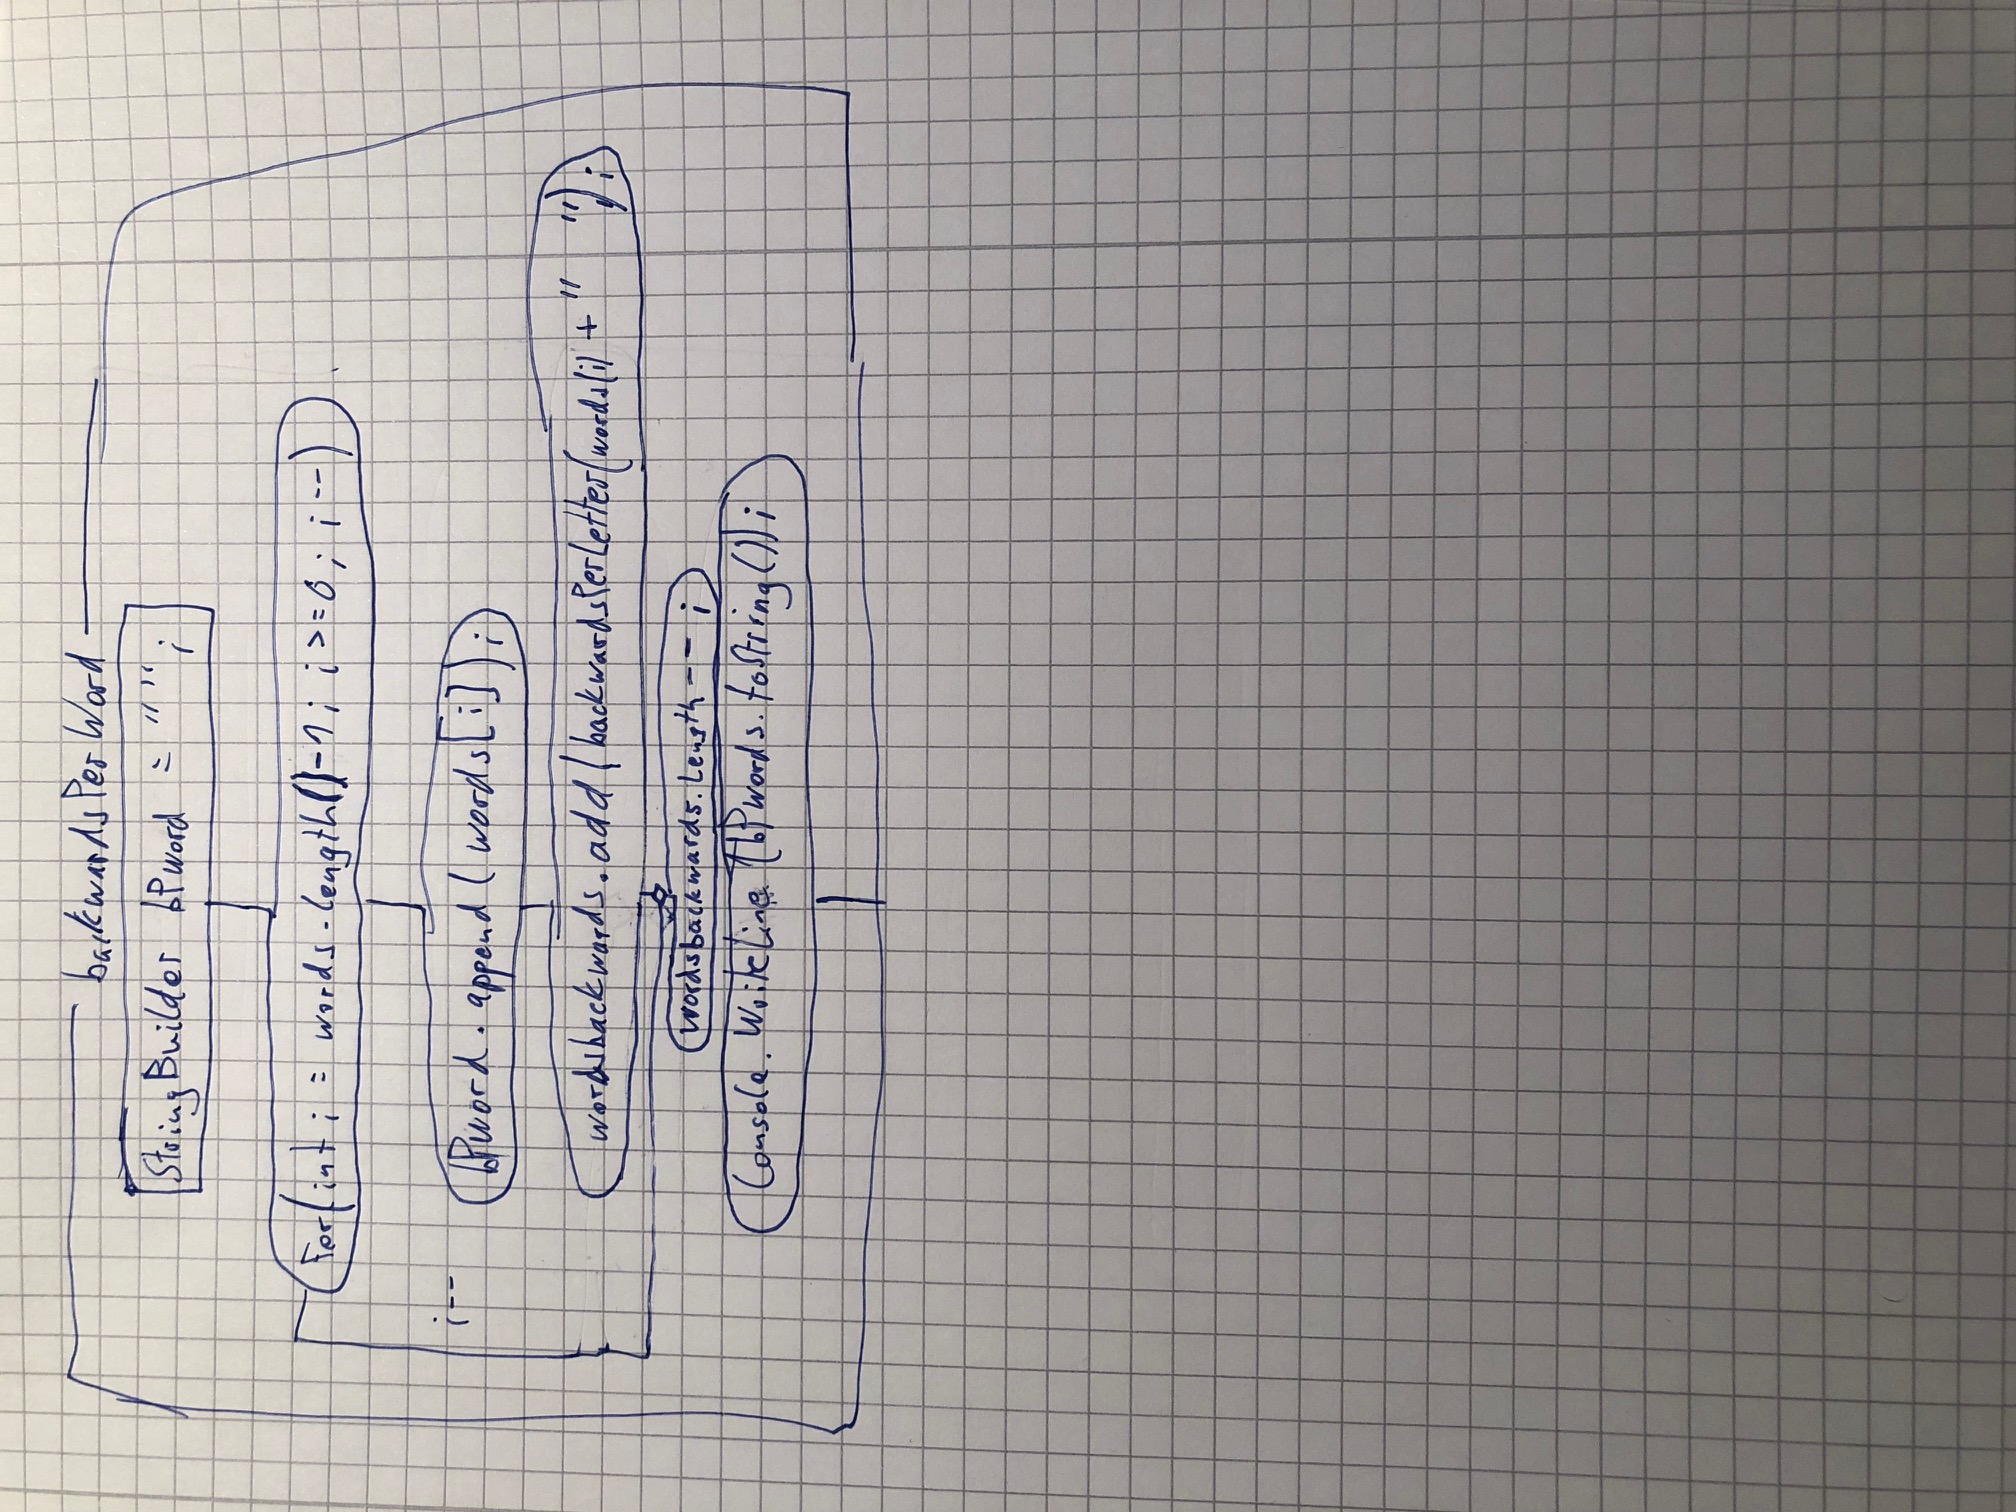 backwardsPerWord
StringBuilder bPword = "";
For(int i = words.length()-1; i >=0; i--)
i--
bPword.append(words[i]);
wordsbackwards.add(backwardsPerLetter(words[i] + " ");
wordsbackwards.Length--;
Console.WriteLine(bPwords.toString());